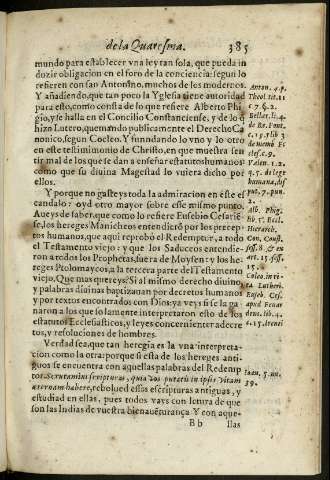 de la Quaresma. 385
mundo para establecer vna ley tan sola, que pueda in
dozir obligacion en el foro de la conciencia: segun lo
refieren con san Antonino, muchos de los modernos.
Y añadiendo, que tan poco la Yglesia tiene autoridad
para esto, como consta de lo que refiere Alberto Phi
gio, y se halla en el Concilio Constanciense, y de lo q̃
hizo Lutero, quemando publicamente el Derecho Ca
nonico, segun Cocleo. Y fundando lo vno y lo otro
en este testimonio de Christo, en que muestra sen
tir mal de los que se dan a enseñar estatutos humanos
como que su diuina Magestad lo vuiera dicho por
ellos.
Y porque no gasteys toda la admiracion en este es
candalo: oyd otro mayor sobre esse mismo punto.
Aueys de saber, que como lo refiere Eusebio Cesarie
se, los hereges Maniche
os entendierō por los precep
tos humanos, que aqui reprobó el Redemptor, a todo
el Testamento viejo: y que los Saduceos entendie-
ron a todos los Prophetas, fuera de Moysen: y los he
reges Ptolomaycos, a la tercera parte del Testamento
viejo. Que mas quereys? Si al mismo derecho diuino,
y palabras diuinas baptizauan por decretos humanos
y por textos encontrados con Dios: ya veys si se la ga
naron a los que solamente interpretaron esto de los
estatutos Ecclesiasticos, y leyes concernientes a decre
tos, y resoluciones de hombres.
Verdad sea, que tan heregia es la vna interpreta-
cion como la otra: porque si esta de los hereges anti-
guos se encuentra con aquellas palabras del Redemp
tor. Scrutamini scripturas, quia vos putatis in ipsis vitam
æternam habere, rebolued essas escripturas antiguas, y
estudiad en ellas, pues todos vays con letura de que
son las Indias de vuestra bienauēturança. Y con aque-
B b llas
Anton. 4. p.
Theol. tit. 11
Bellar. li. 4.
de Ro. Pont.
c. 15. lib. 3
Valen. 1. 2.
q. 5. de lege
humana, dis
put. 7. pun.
2.
Alb. Phig.
lib. 5. Eccl.
Hierarch.
Con. Const.
sess. 8. & en
art. 15. sess.
15.
Coleo. in vi-
ta Lutheri.
Euseb. Ces.
Ioan. 5. nu.
39.